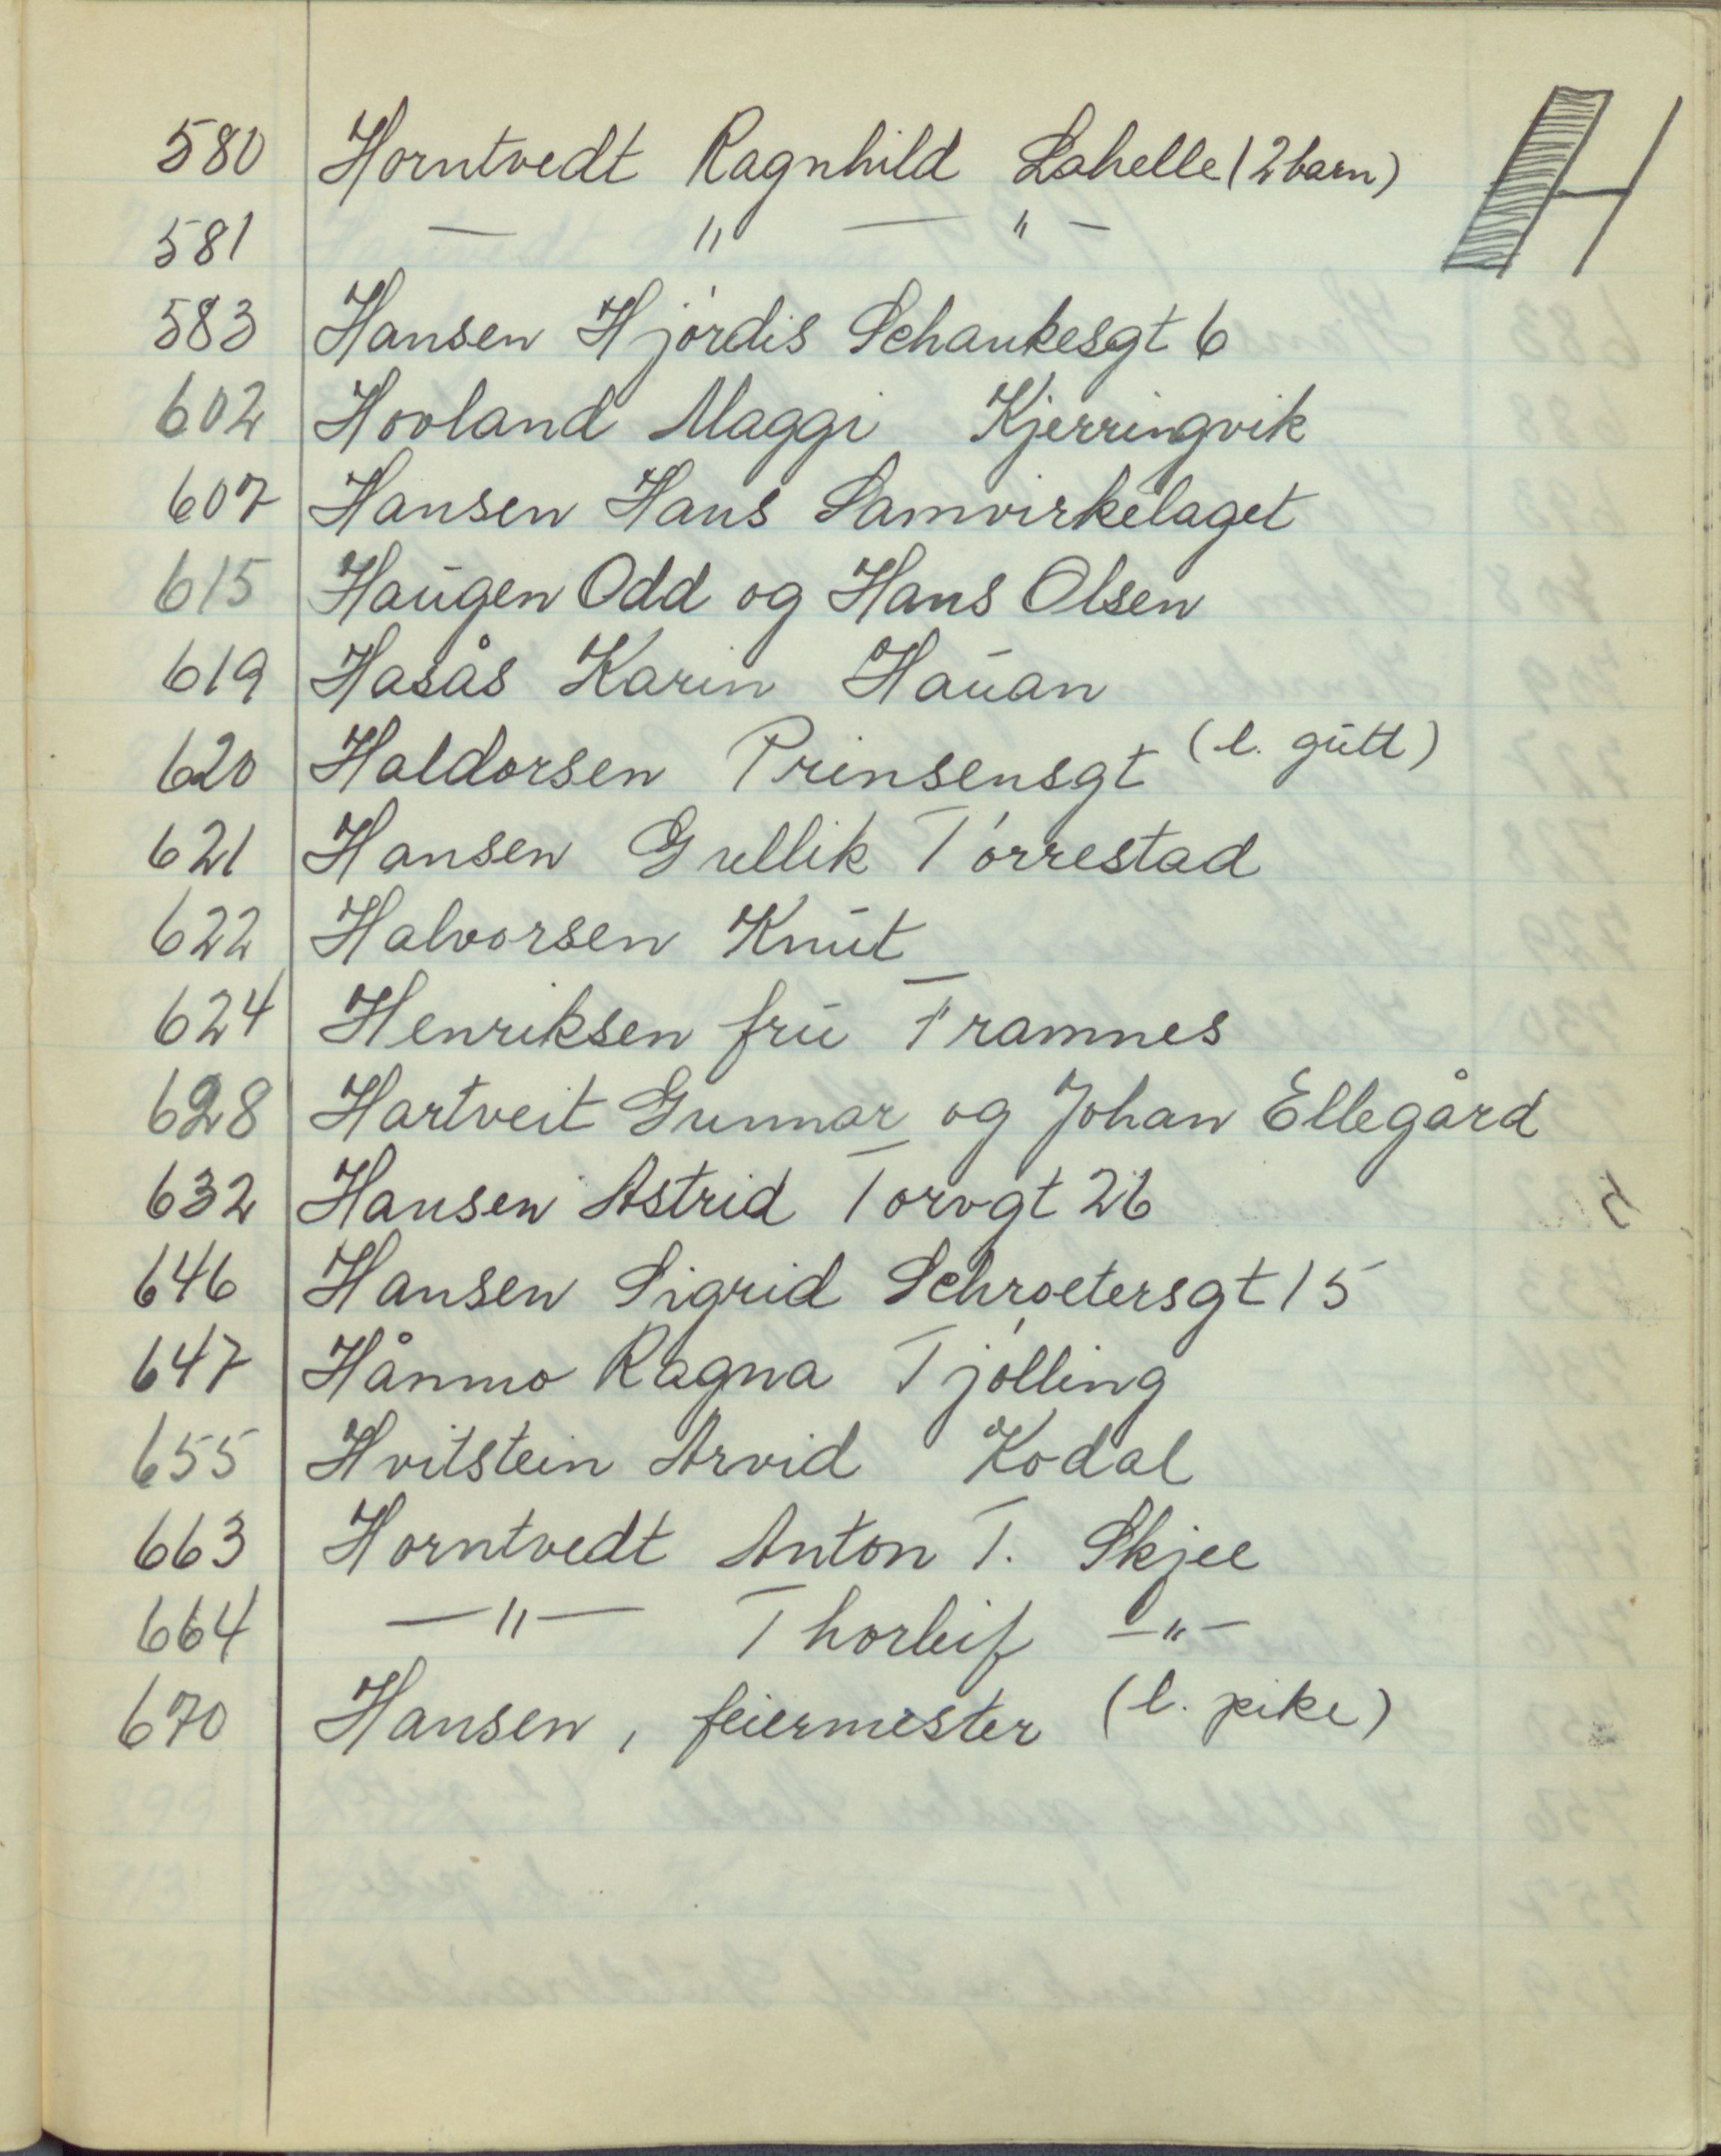 H
580 Horntvedt Ragnhild Lahelle (2 barn)
581 — " — " —
583 Hansen Hjórdis Schankesgt 6
602 Hovland Maggi Kjerringvik
607 Hansen Hans Samvirkelaget
615 Haugen Odd og Hans Olsen
619 Hasås Karin Hauan
620 Haldorsen Prinsensgt (l. gutt)
621 Hansen Gullik Tórrestad
622 Halvorsen Knut
624 Henriksen fru Framnes
628 Hartveit Gunnar og Johan Ellegård
632 Hansen Astrid Torvgt 26
646 Hansen Sigrid Schroetersgt 15
647 Hånmo Ragna Tjólling
655 Hvitstein Arvid Kodal
663 Horntvedt Anton T. Skjee
664 — " — Thorleif — " —
670 Hansen, feiermester (l. pike)